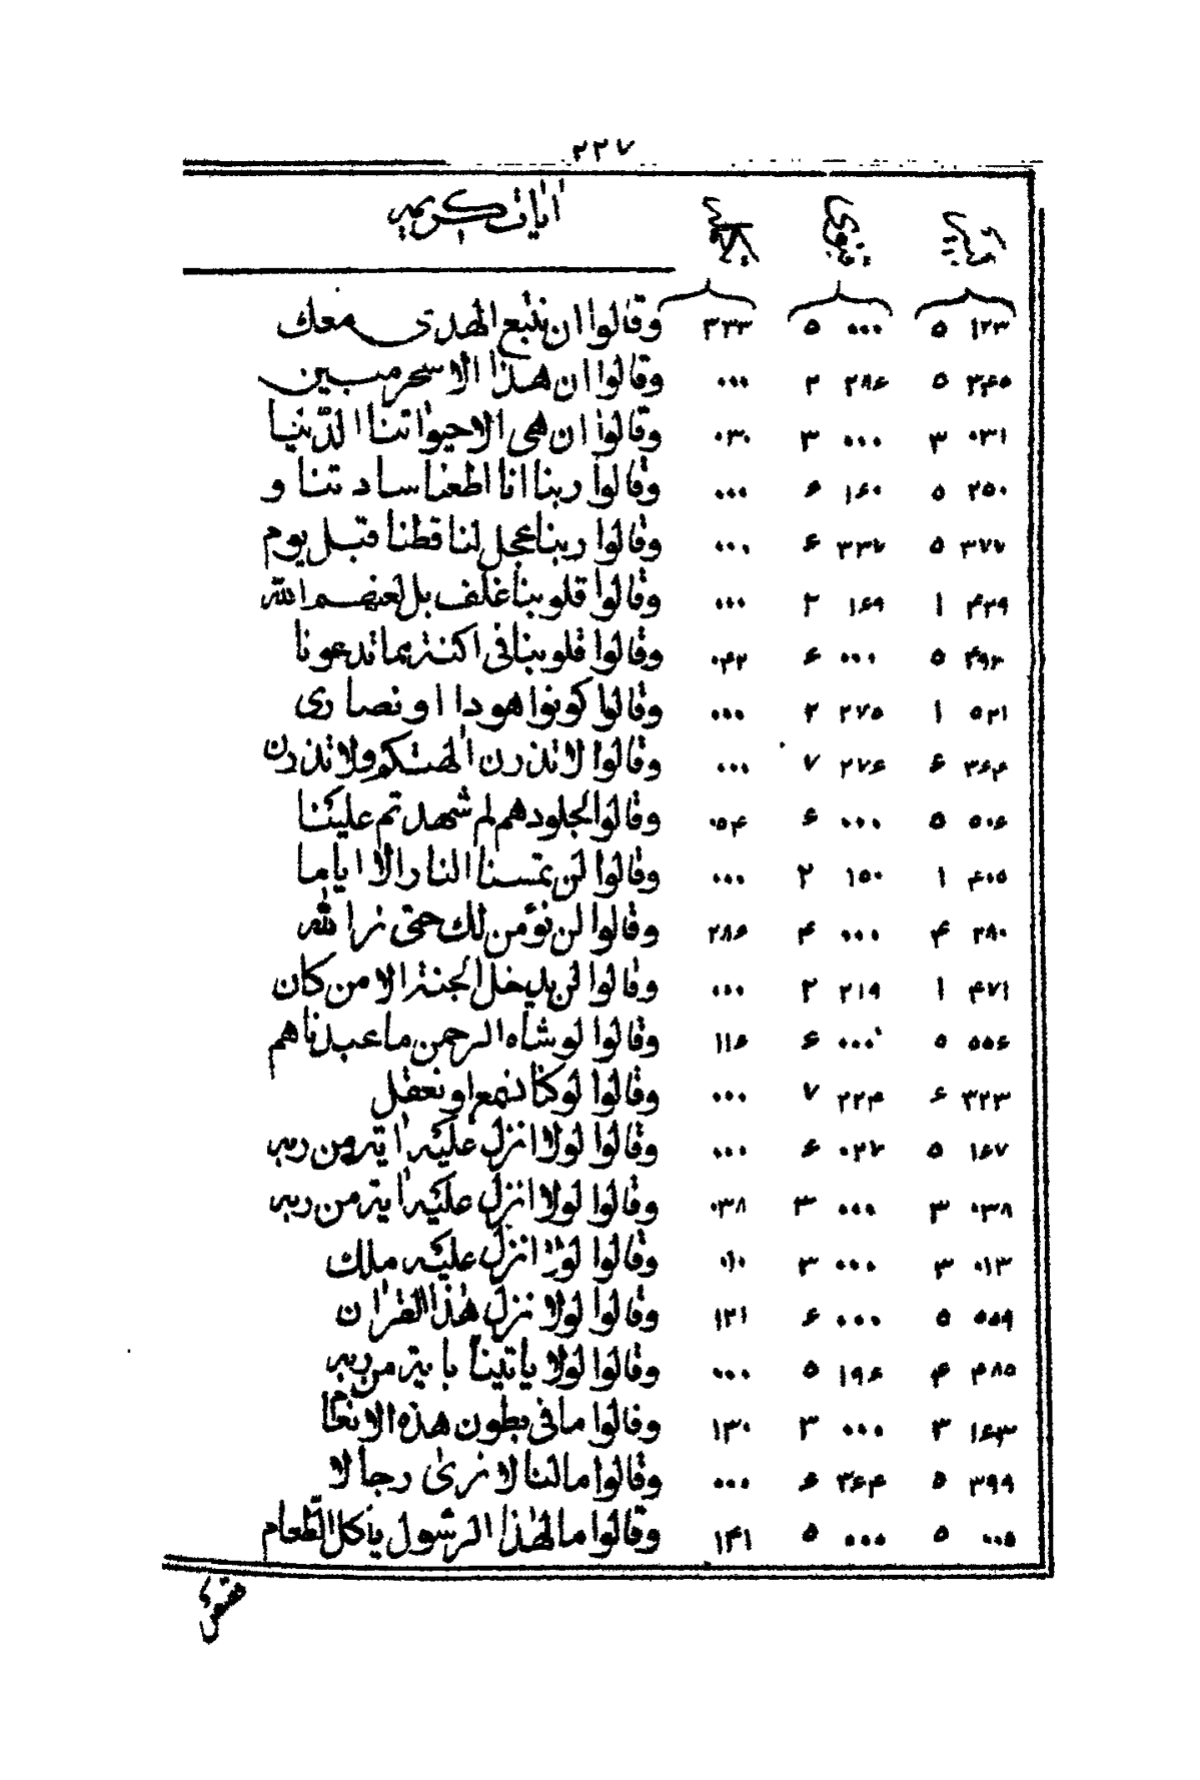 ٢٢٧
اٰيات كريمه
١٢٣ ٥ ٠٠٠ ٥ ٣٣٣ وقالوا ان نتبع الهدى معك
٢۴٥ ٥ ٢٨۶ ٢ ٠٠٠ وقالوا ان هذا الا سحر مبين
٠٣١ ٣ ٠٠٠ ٣ ٠٣٠ وقالوا ان هى الا حيواتنا الدنيا
٢٥٠ ٥ ١۶٠ ۶ ٠٠٠ وقالوا ربنا انا اطعنا سادتنا و
٣٧٧ ٥ ٣٣٧ ۶ ٠٠٠ وقالوا ربنا عجل لنا قطنا قبل يوم
۴٢٩ ١ ١۶٩ ٢ ٠٠٠ وقالوا قلوبنا غلف بل لعنهم الله
۴٩٣ ٥ ٠٠٠ ۶ ٠۴٢ وقالوا قلوبنا فى اكنة مما تدعونا
٥٢١ ١ ٢٧٥ ٢ ٠٠٠ وقالوا كونوا هودا او نصارى
٣۶۴ ۶ ٢٧۶ ٧ ٠٠٠ وقالوا لا تذرن اٰلهتكم ولا تذرن
٥٠۶ ٥ ٠٠٠ ۶ ٠٥۴ وقالوا لجلودهم لم شهدتم علينا
۴٠٥ ١ ١٥٠ ٢ ٠٠٠ وقالوا لن تمسنا النار الا اياما
٢٨٠ ۴ ٠٠٠ ۴ ٢٨۶ وقالوا لن نؤمن لك حتى نرا الله
۴٧١ ١ ٢١٩ ٢ ٠٠٠ وقالوا لن يدخل الجنة الا من كان
٥٥۶ ٥ ٠٠٠ ۶ ١١۶ وقالوا لو شاه الرحمن ما عبدناهم
٣٢٣ ۶ ٢٢۴ ٧ ٠٠٠ وقالوا لو كنا نسمع او نعقل
١۶٧ ٥ ٠٢٧ ۶ ٠٠٠ وقالوا لولا انزل عليه اٰية من ربه
٠٣٨ ٣ ٠٠٠ ٣ ٠٣٨ وقالوا لولا انزل عليه اٰية من ربه
٠١٣ ٣ ٠٠٠ ٣ ٠١٠ وقالوا لولا انزل عليه ملك
٥٥٩ ٥ ٠٠٠ ۶ ١٢١ وقالوا لولا نزل هٰذا القراٰن
۴٨٥ ۴ ١٩۶ ٥ ٠٠٠ وقالوا لولا ياتينا باية من ربه
١۶٣ ٣ ٠٠٠ ٣ ١٣٠ وقالوا ما فى بطون هذه الانعٰام
٣٩٩ ٥ ٣۶۴ ۶ ٠٠٠ وقالوا ما لنا لا نرىٰ رجالا
٠٠٥ ٥ ٠٠٠ ٥ ١۴١ وقالوا ما لهٰذا الرسول يأكل الطّعام